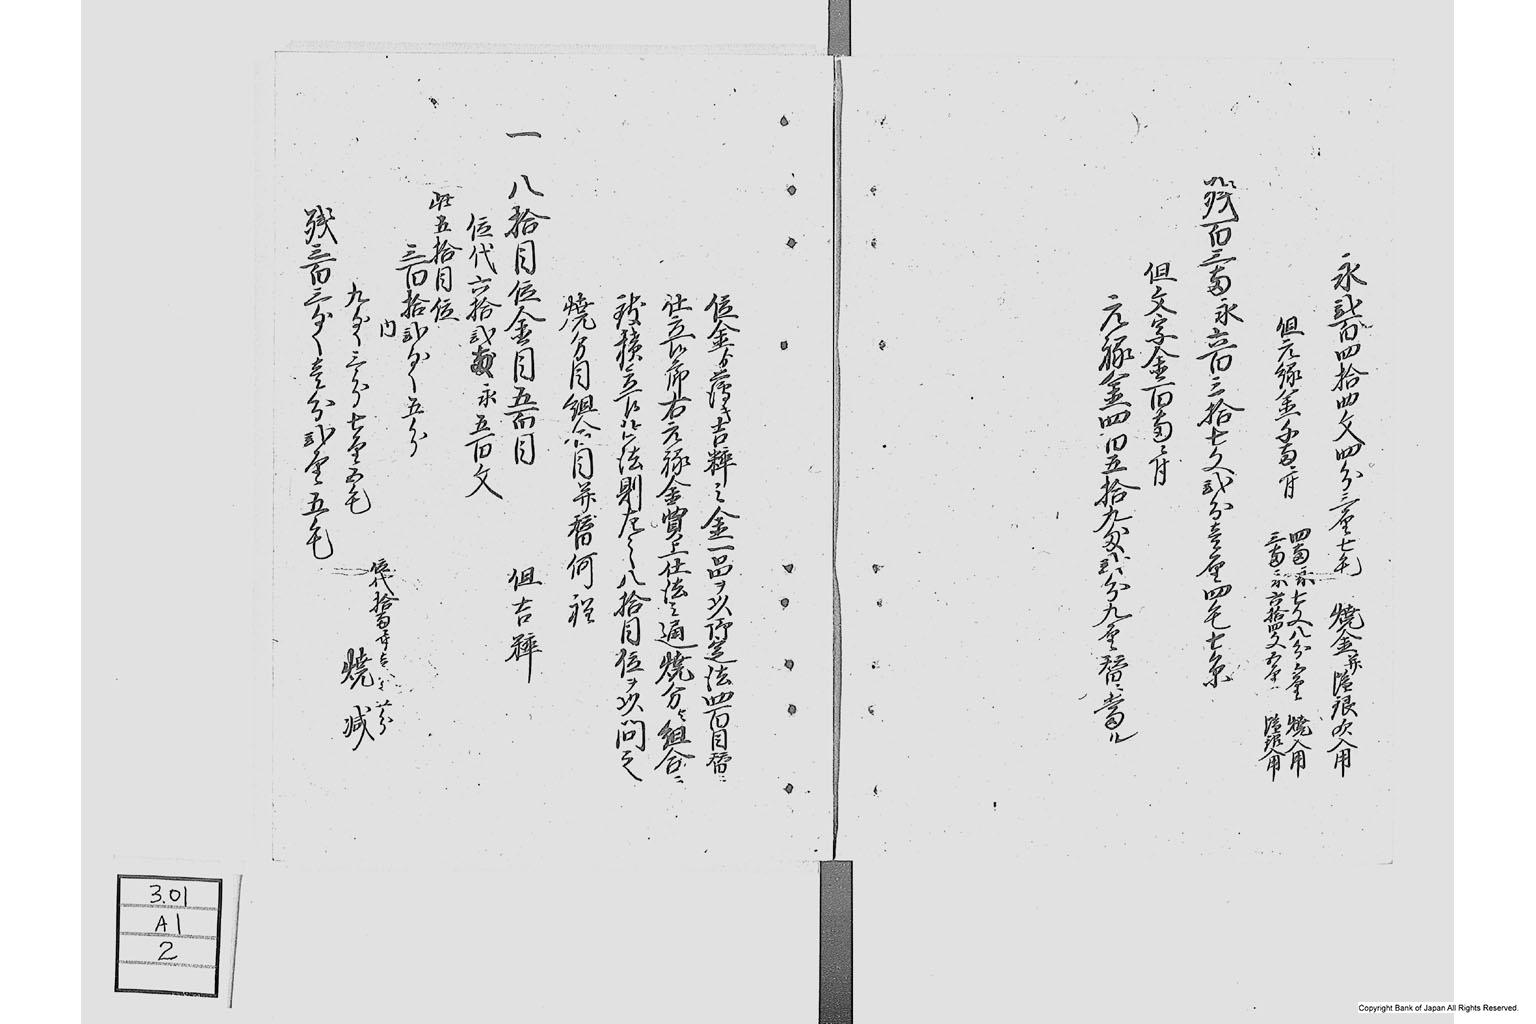 永弐百四拾四文四分三厘七毛　焼金并溜銀吹入用
但元禄金千両ニ付
四両永七文八分六厘　焼入用
三両永六拾四文五厘　溜銀入用
残百三両永六百三拾七文弐分壱厘四毛七糸
但文字金百両ニ付
元禄金四百五拾九匁弐分九厘替ニ当ル
位金ゟ薄き吉粹之金一品ヲ以御定法四百目替ニ
仕立候節右元禄金買上仕法之通焼分ケ組合ニ
積立候法則左之八拾目位ヲ以問之
焼分目組合目并替何程
一　八拾目位金目五百目　但吉粹
位代六拾弐両永五百文
此五拾目位
三百拾弐匁五分
内
九匁三分七厘五毛　焼減
位代拾
残三百三匁壱分弐厘五毛
3.01
A1
2
Copyright Bank of Japan All Rights Reserved.